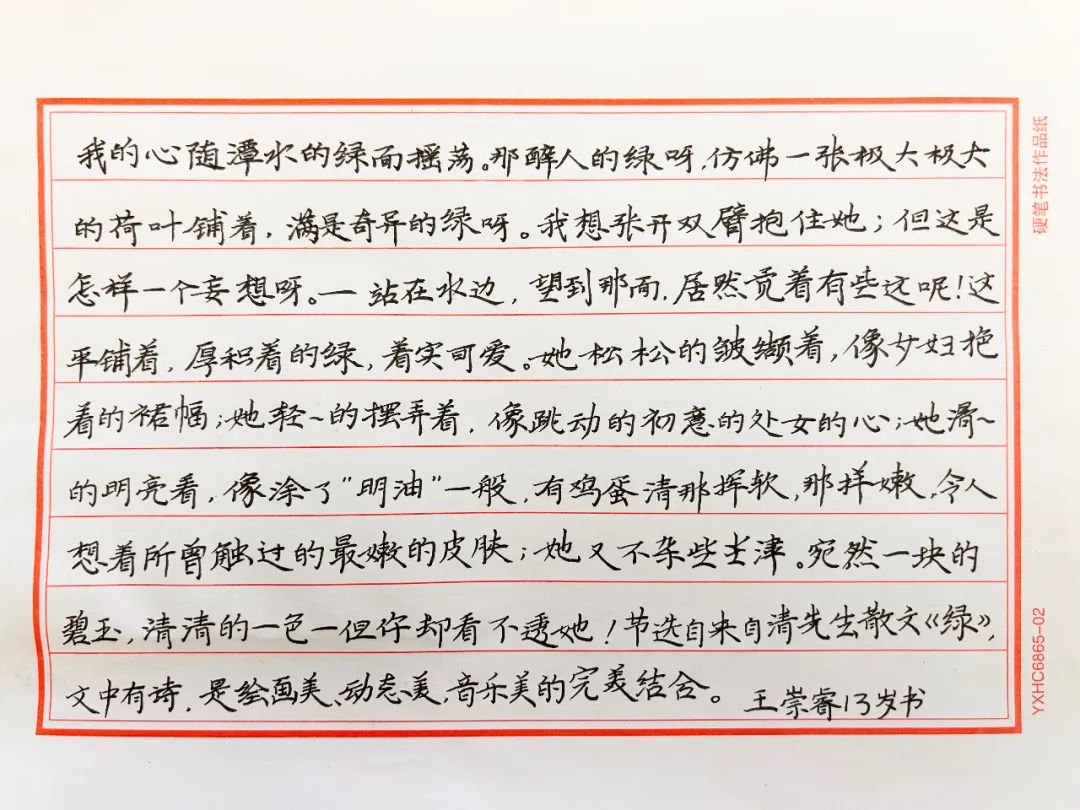 我的心随潭水的绿而摇荡。那醉人的绿呀,仿佛一张极大极大
的荷叶铺着,满是奇异的绿呀。我想张开双臂抱住她;但这是
怎样一个妄想呀。一站在水边,望到那面,居然觉着有些远呢!这
平铺着,厚积着的绿,着实可爱。她松松的皱缬着,像少妇拖
着的裙幅;她轻~的摆弄着,像跳动的初意的处女的心;她滑~
的明亮着,像涂了“明油”一般,有鸡蛋清那挥软,那样嫩,令人
想着所曾触过的最嫩的皮肤;她又不杂些尘滓。宛然一块的
碧玉,清清的一色一但你却看不透她!节选自朱自清先生散文《绿》,
文中有诗,是绘画美、动态美,音乐美的完美结合。 王崇睿13岁书
硬笔书法作品纸
YXHC6865-02